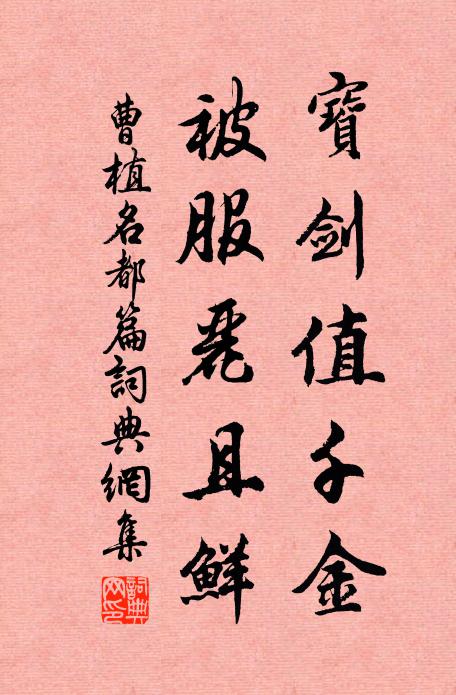 寶劍值千金
被服麗且鮮
曹植名都篇詞典網集
詞典网印